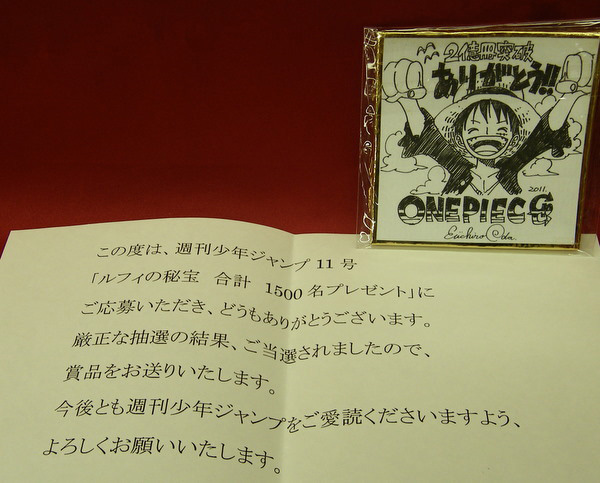 2億冊突破
ありがとう!!
2011.
ONE PIECE
Eiichiro Oda
この度は、週刊少年ジャンプ 11 号
「ルフィの秘宝 合計 1500 名プレゼント」に
ご応募いただき、どうもありがとうございます。
厳正な抽選の結果、ご当選されましたので、
賞品をお送りいたします。
今後とも週刊少年ジャンプをご愛読くださいますよう、
よろしくお願いいたします。